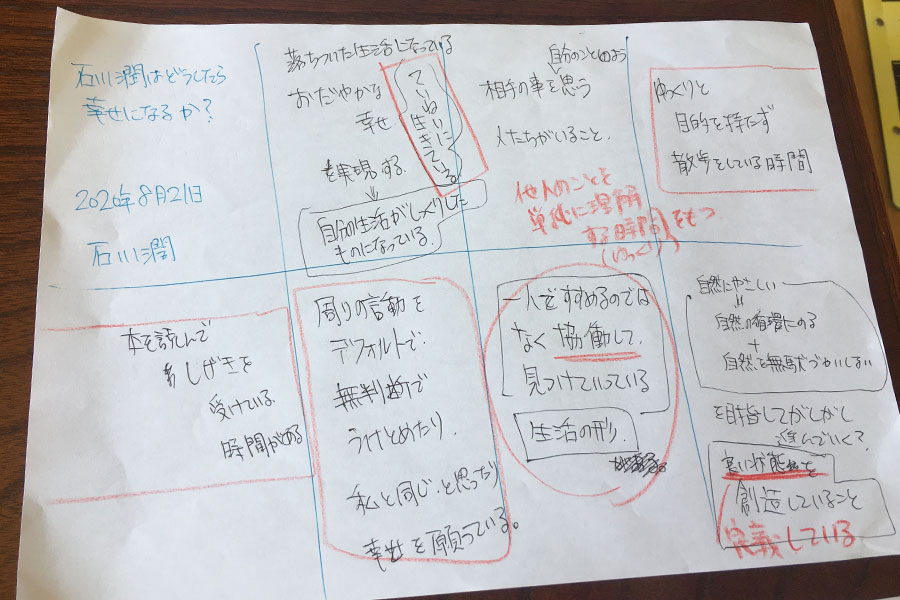 石川潤はどうしたら
幸せになるか?
2020年8月21日
石川潤
落ちついた生活になっている
おだやかな
幸せ
を実現する
ていねいに
生きている
自分の生活がしっくりした
ものになっている。
自分のことのよう
相手の事を思う
人たちがいること.
他人のことを
単純に理解
する時間をもつ
(ゆっくり)
ゆっくりと
目的を持たず
散歩をしている時間
本を読んで
しげきを
受けている
時間がある
周りの言動を
デフォルトで
無判断で
うけとめたり.
私と同じ、と思ったり
幸せを願っている。
一人ですすめるのでは
なく協働して.
見つけていっている
生活の形.
自然にやさしい
自然の循環にのる
+
自然を無駄づかいしない
を目指してがしがし
進んでいく?
良い状態を
創造していること
定義している